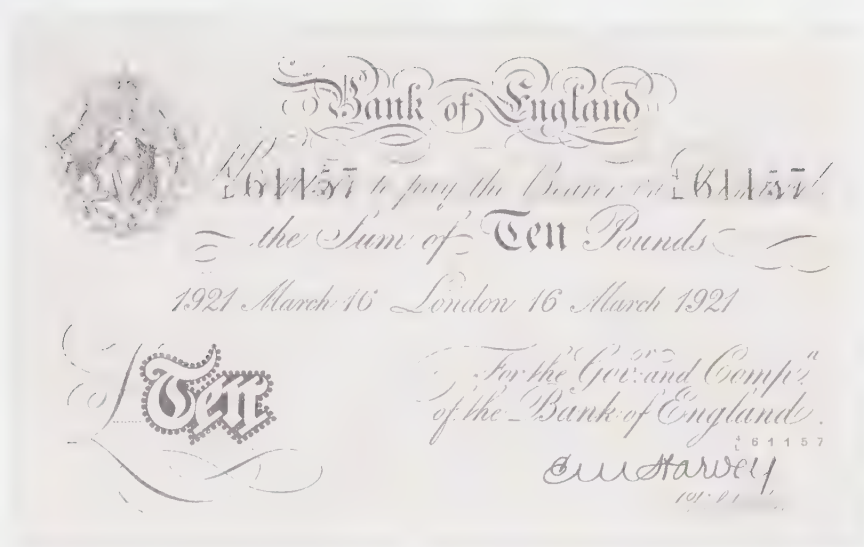 Bank of England
61157 to pay the Bearer on 61157
the Sum of Ten Pounds
1921 March 16 London 16 March 1921
For the Govr: and Compa
of the Bank of England.
£Ten
61157
E M Harvey